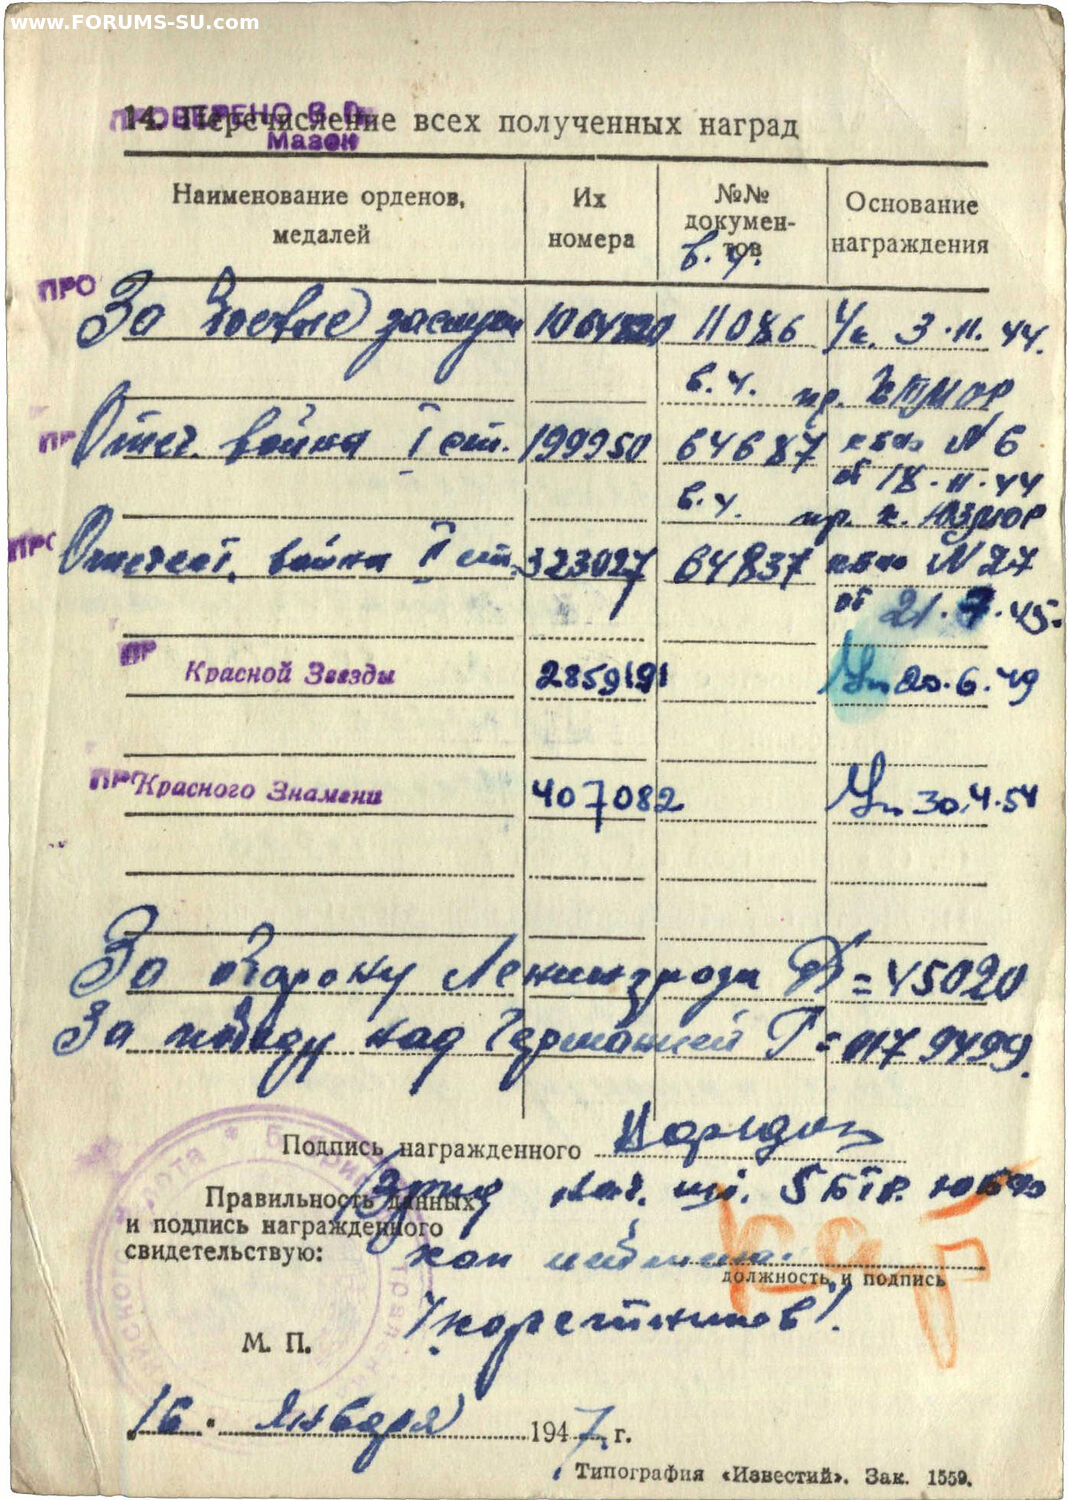 www.FORUMS-SU.com
ПРОВЕРЕНО
14. Перечисление всех полученных наград
Наименование орденов, медалей
Их номера
№№ документов
Основание награждения
в. ч.
ПРО
За боевые заслуги 11086 Ук. 3.11.44.
в. ч. пр.
ПР
Отеч. война I ст. 199950 64687 КБФ N 6
от 18.11.44
в. ч. пр. к.
ПРО
Отечест. война II ст. 323027 64837 КБФ N 27
от 21.7.45.
ПР
Красной Звезды 2859191 Ук 20.6.49
ПР
Красного Знамени 407082 Ук 30.4.54
За оборону Ленинграда = 45020
За победу над Германией Г = 0179499.
Подпись награжденного
Правильность данных
и подпись награжденного
свидетельствую:
Врид нач. шт. 5 БТК ЮБФ
кап
должность и подпись
М. П.
16. Января 1947 г.
Типография «Известий». Зак. 1559.